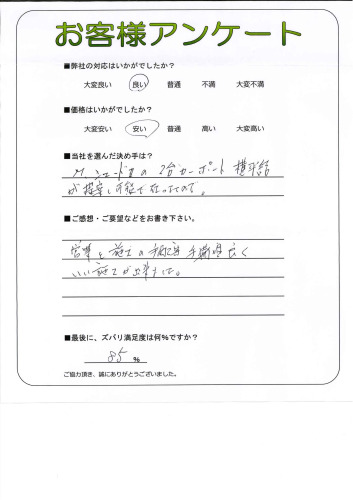 お客様アンケート
■弊社の対応はいかがでしたか？
大変良い 良い 普通 不満 大変不満
■価格はいかがでしたか？
大変安い 安い 普通 高い 大変高い
■当社を選んだ決め手は？
の2台カーポート 横連結
■ご感想・ご要望などをお書き下さい。
営業と施工の
いい施工が出来ました。
■最後に、ズバリ満足度は何％ですか？
85 %
ご協力頂き、誠にありがとうございました。